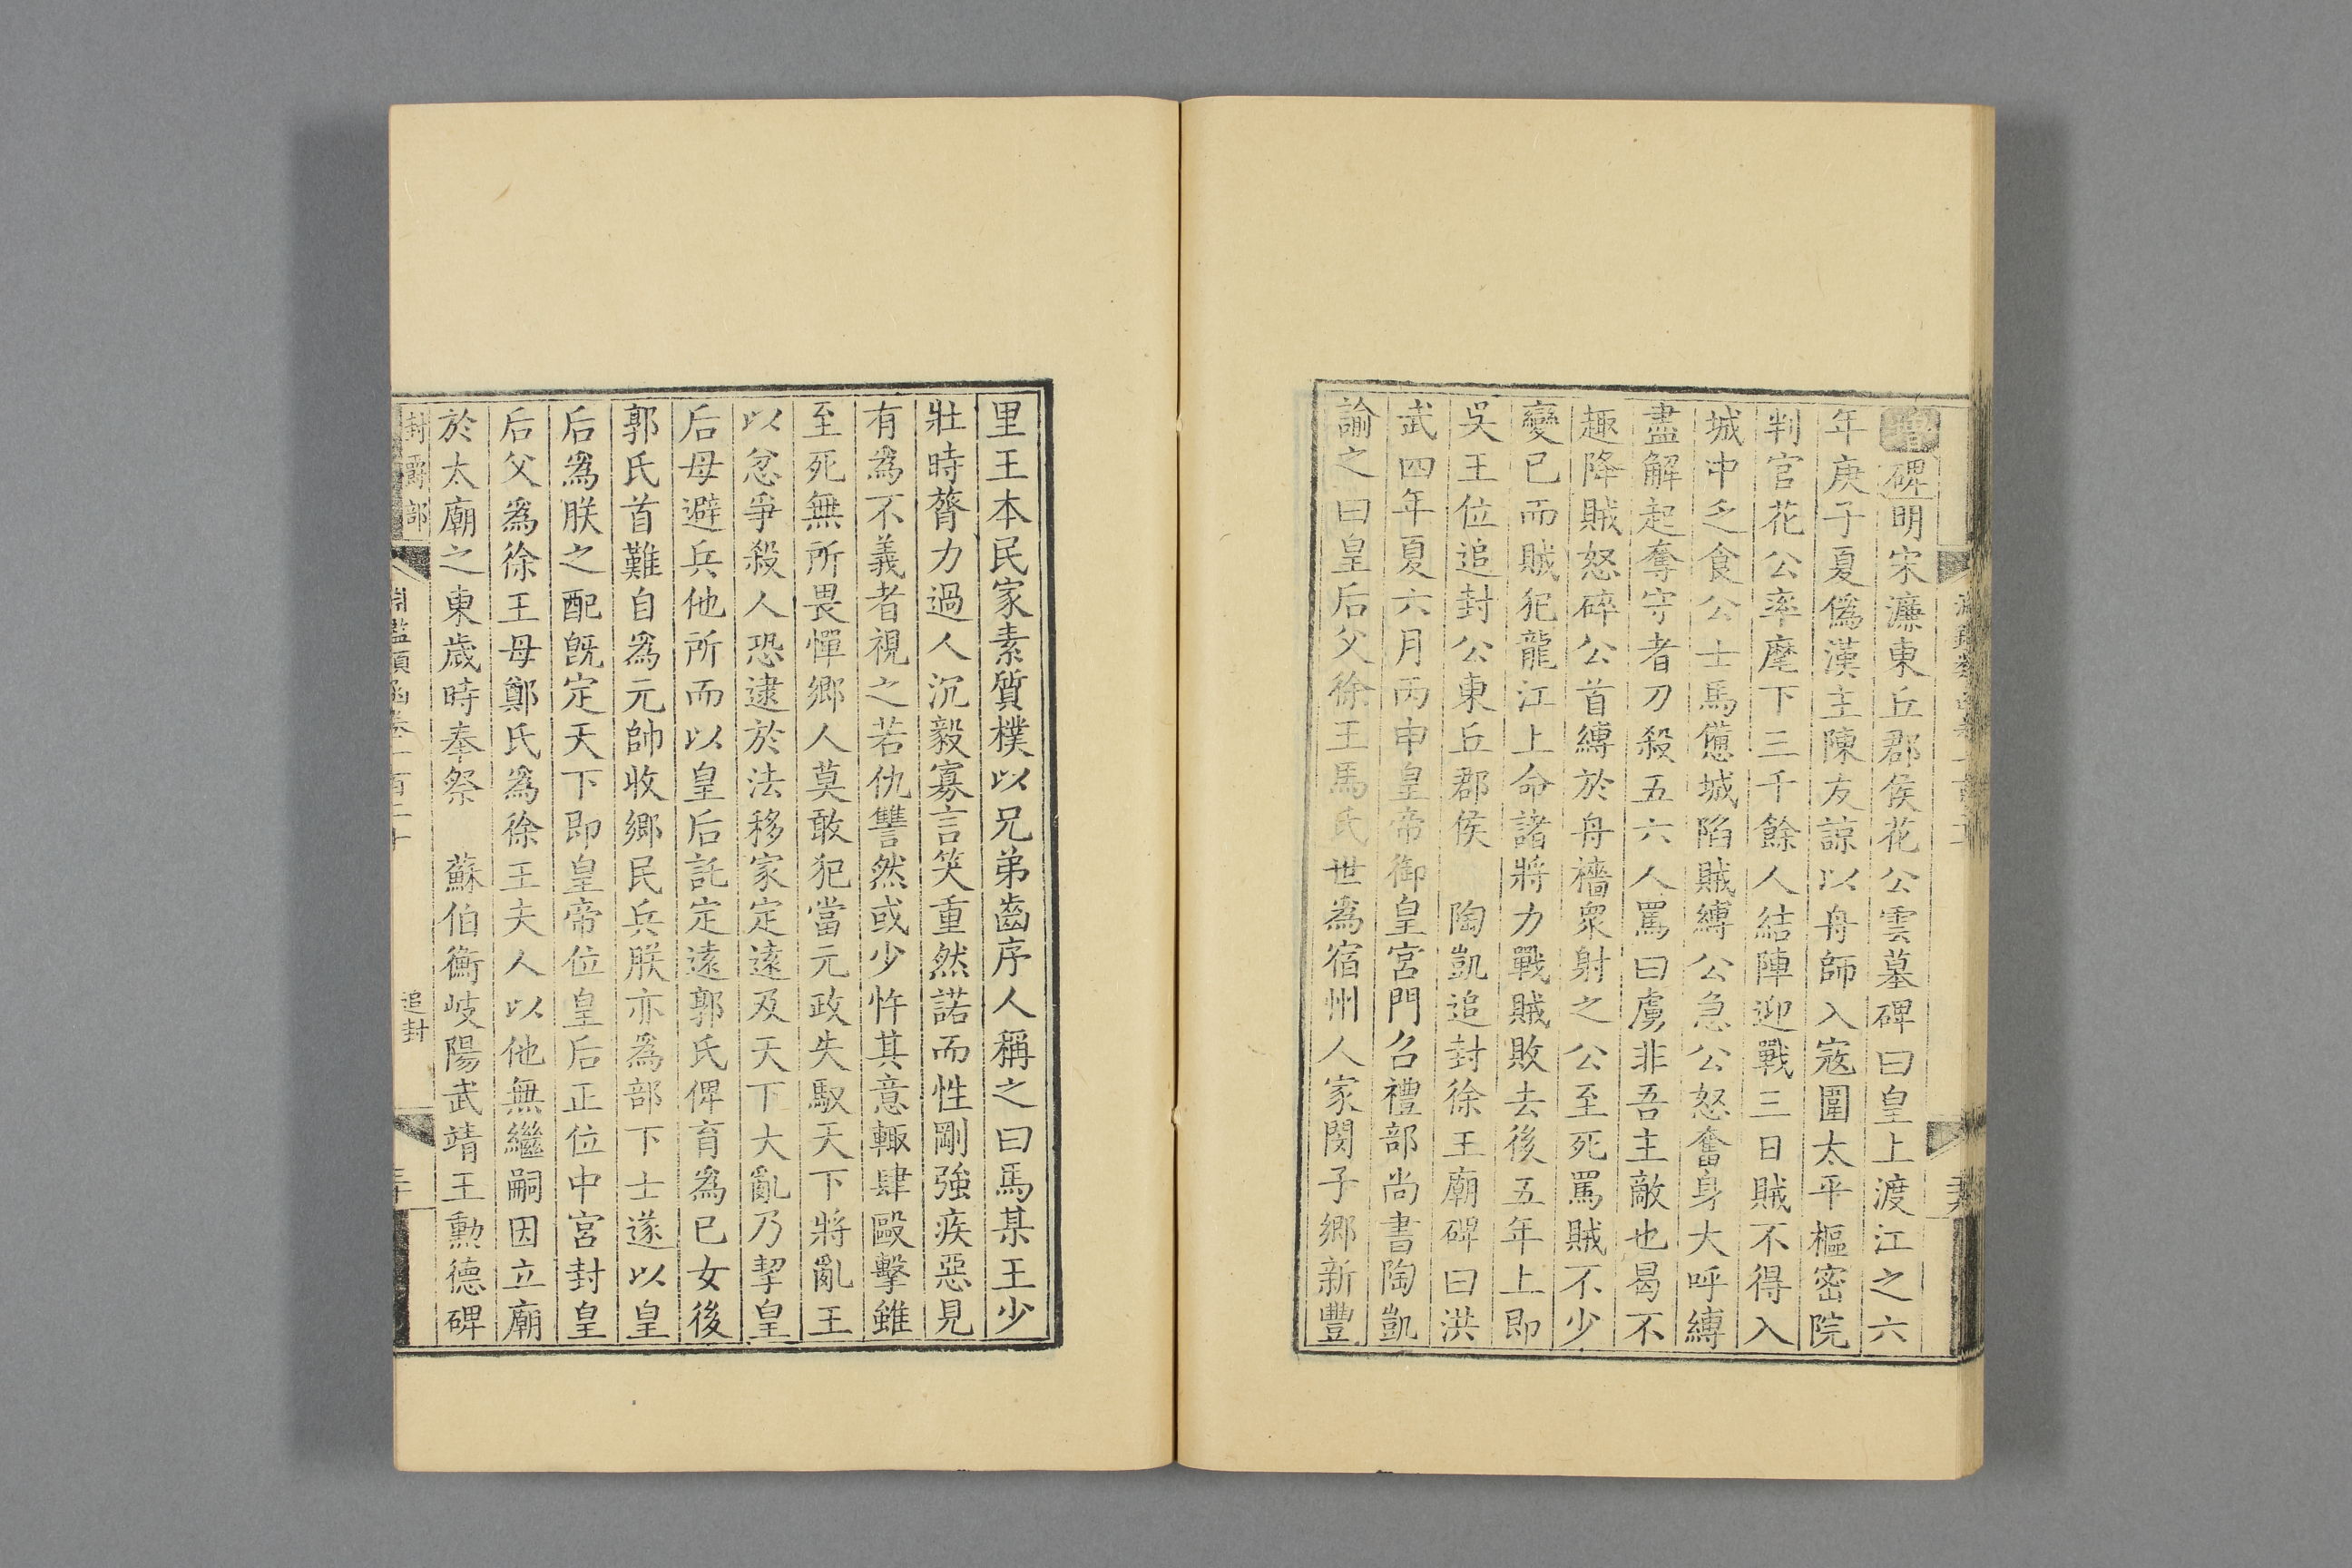 增碑明宋濂東丘郡侯花公雲墓碑曰皇上渡江之六
年庚子夏僞漢主陳友諒以舟師入寇圍太平樞密院
判官花公率麾下三千餘人結陣迎戰三日賊不得入
城中乏食公士馬憊城陷賊縛公急公怒奮身大呼縛
盡解起奪守者刀殺五六人罵曰虜非吾主敵也曷不
趣降賊怒碎公首縛於舟檣衆射之公至死罵賊不少
變已而賊犯龍江上命諸將力戰賊敗去後五年上即
吳王位追封公東丘郡侯　陶凱追封徐王廟碑曰洪
武四年夏六月丙申皇帝御皇宮門召禮部尚書陶凱
諭之曰皇后父徐王馬氏世爲宿州人家閔子鄉新豐
里王本民家素質樸以兄弟齒序人稱之曰馬某王少
壯時膂力過人沉毅寡言笑重然諾而性剛強疾惡見
有爲不義者視之若仇讐然或少忤其意輙肆毆擊雖
至死無所畏憚鄉人莫敢犯當元政失馭天下將亂王
以忿爭殺人恐逮於法移家定遠及天下大亂乃挈皇
后母避兵他所而以皇后託定遠郭氏俾育爲已女後
郭氏首難自爲元帥收鄉民兵朕亦爲部下士遂以皇
后爲朕之配旣定天下即皇帝位皇后正位中宮封皇
后父爲徐王母鄭氏爲徐王夫人以他無繼嗣因立廟
於太廟之東歲時奉祭　蘇伯衡岐陽武靖王勳德碑
封爵部
追封